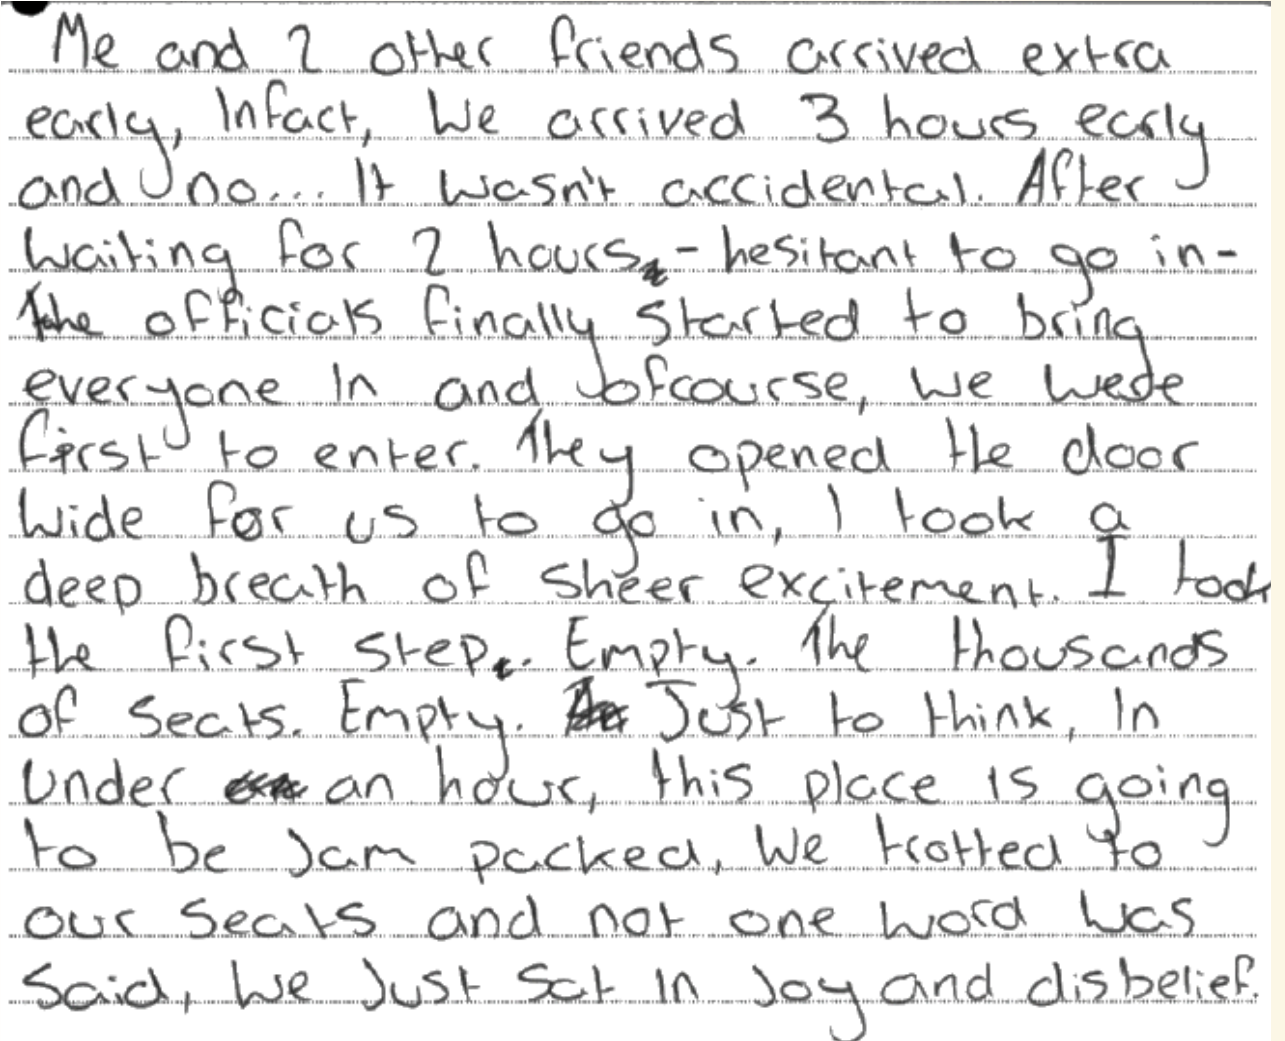 Me and 2 other friends arrived extra
early, Infact, We arrived 3 hours early
and no... It wasn't accidental. After
waiting for 2 hours - hesitant to go in -
the officials finally started to bring
everyone In and ofcourse, we were
first to enter. They opened the door
wide for us to go in, I took a
deep breath of sheer excitement. I took
the first step. Empty. The thousands
of seats. Empty. Just to think, In
under an hour, this place is going
to be Jam packed, We trotted to
our seats and not one word was
said, We Just sat In Joy and disbelief.